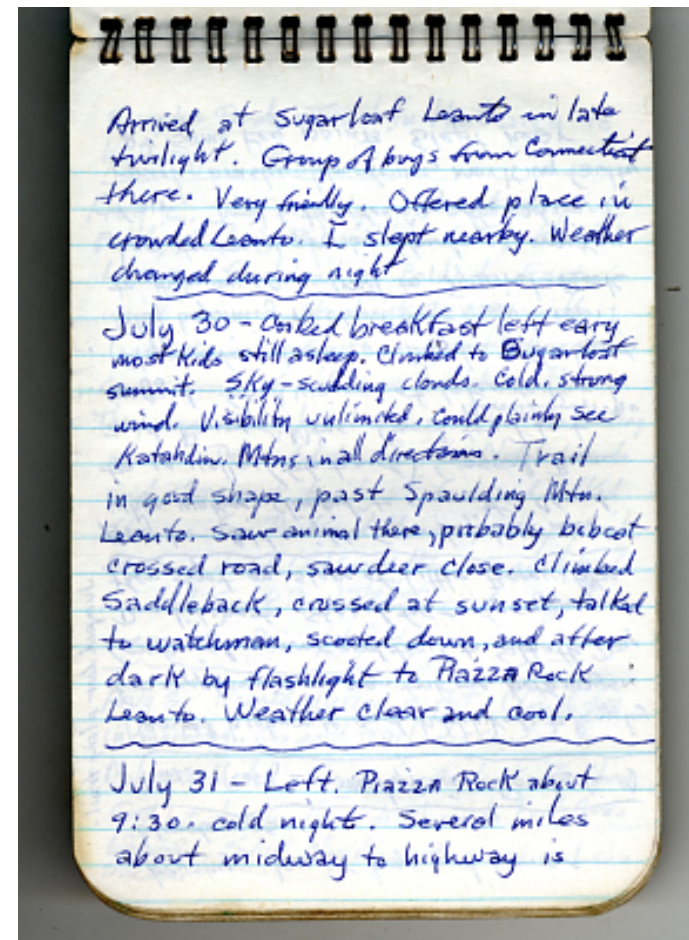 Arrived at Sugarloaf Leanto in late
twilight. Group of boys from Connecticut
there. Very friendly. Offered place in
crowded Leanto. I slept nearby. Weather
changed during night
July 30 - Cooked breakfast left eary
most kids still asleep. Climbed to Sugarloaf
summit. Sky - scudding clouds. Cold, strong
wind. Visibility unlimited. Could plainly see
Katahdin. Mtns in all directions. Trail
in good shape, past Spaulding Mtn.
Leanto. Saw animal there, probably bobcat
crossed road, saw deer close. Climbed
Saddleback, crossed at sunset, talked
to watchman, scooted down, and after
dark by flashlight to Piazza Rock
Leanto. Weather clear and cool.
July 31 - Left. Piazza Rock about
9:30. cold night. Several miles
about midway to highway is